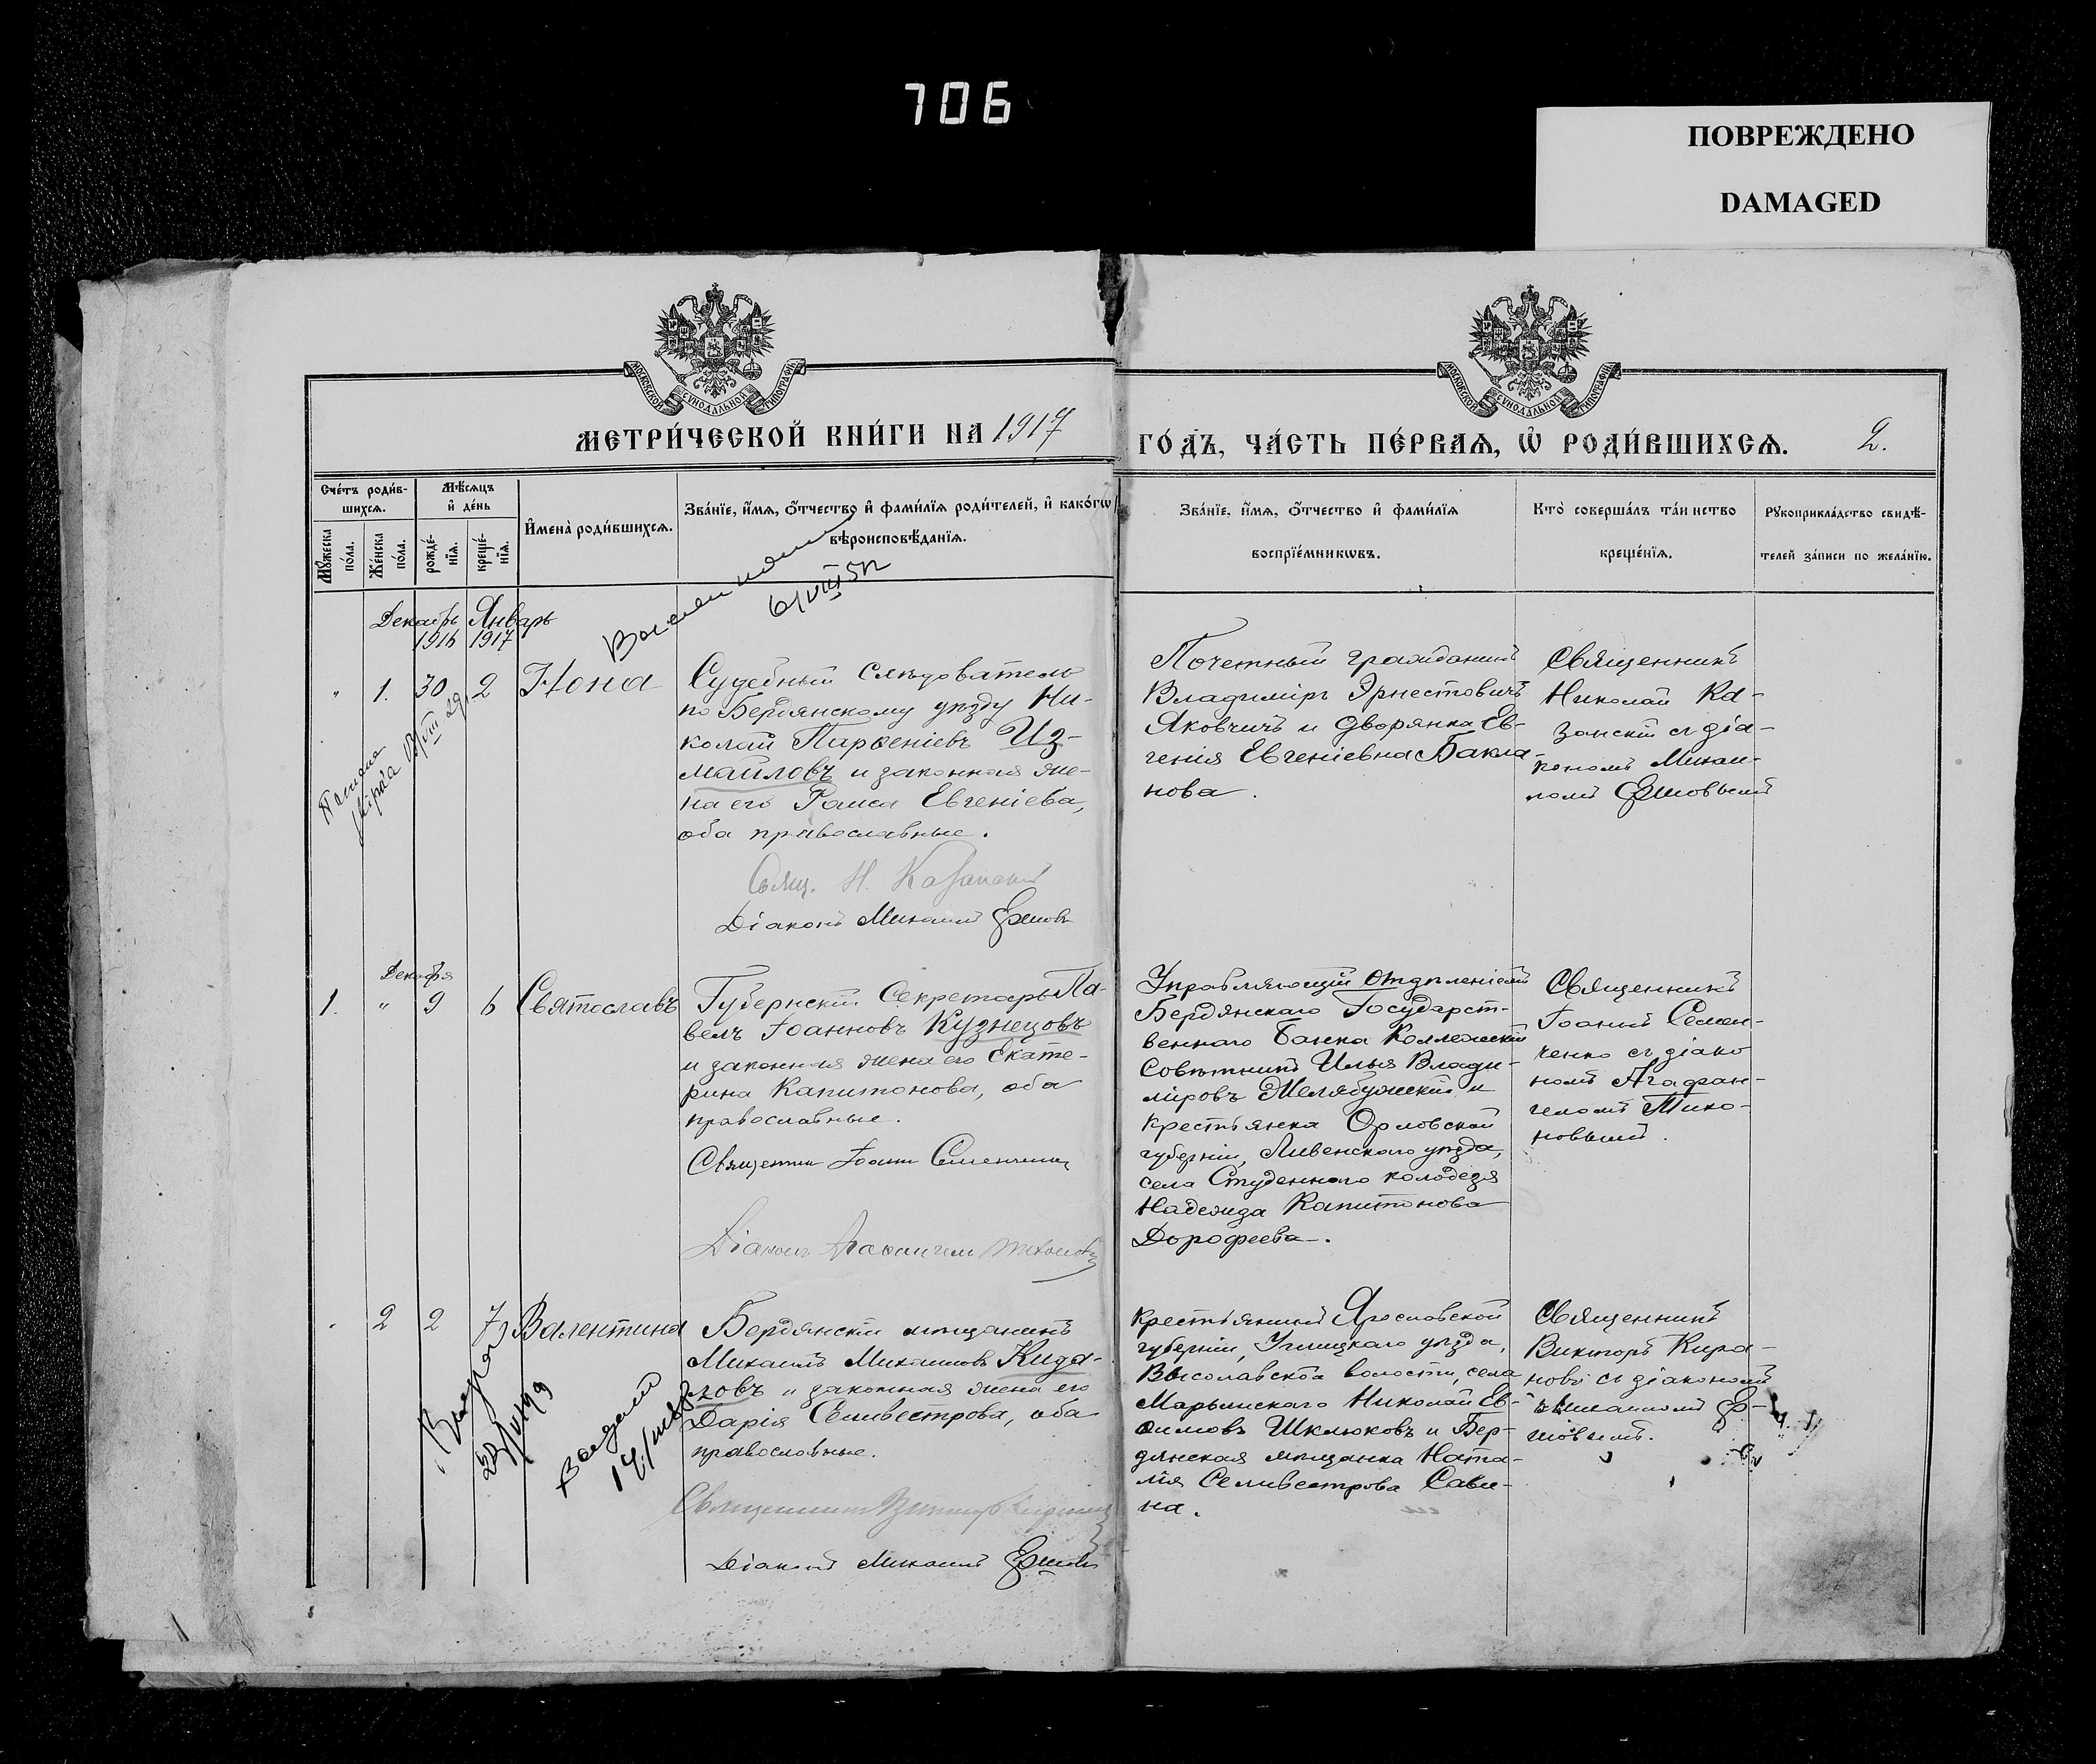 706
ПОВРЕЖДЕНО
DAMAGED
МОСКОВСКОЙ СѴНОДАЛЬНОЙ ТИПОГРАФІИ
МОСКОВСКОЙ СѴНОДАЛЬНОЙ ТИПОГРАФІИ
МЕТРИ́ЧЕСКОЙ КНИ́ГИ НА 1917
ГО́ДЪ, ЧА́СТЬ ПЕ́РВАѦ, Ѡ҆ РОДИ́ВШИХСѦ. 2.
Сче́тъ роди́в-
шихсѧ.
Мѣ́сѧцъ
и҆ де́нь
Мꙋ́жеска
по́ла.
Же́нска
по́ла.
рожде́-
нїѧ.
креще́-
нїѧ.
И҆мена̀ роди́вшихсѧ.
Зва́нїе, и҆́мѧ, ѻ҆́тчество и҆ фами́лїѧ роди́телей, и҆ како́гѡ
вѣроисповѣ́данїѧ.
Зва́нїе, и҆́мѧ, ѻ҆́тчество и҆ фами́лїѧ
воспрїе́мникѡвъ.
Кто̀ соверша́лъ та́инство
креще́нїѧ.
Рꙋкоприкла́дство свидѣ́-
телей за́писи по жела́нїю.
6/VIII 52
Декабрь Январь
1916 1917
" 1. 30 2 Нона
Судебный Слѣдователь
по Бердянскому уѣзду Ни-
колай Парѳеніевъ Из-
маиловъ и законная же-
на его Раиса Евгеніева,
оба православные.
Свящ. Н. Казанский
Діаконъ Михаилъ Ершовъ
Почетный гражданинъ
Владиміръ Эрнестовичъ
Яковчичъ и дворянка Ев-
генія Евгеніевна Бакла-
нова.
Священникъ
Николай Ка-
занскій съ діа-
кономъ Михаи-
ломъ Ершовымъ
Декабря
1. " 9 6 Святославъ
Губернскій Секретарь Па-
велъ Іоанновъ Кузнецовъ
и законная жена его Екате-
рина Капитонова, оба
православные.
Священник Іоанн Семенченко
Діаконъ Агаѳангелъ Тихоновъ
Управляющій Отдѣленіемъ
Бердянскаго Государст-
веннаго Банка Коллежскій
Совѣтникъ Илья Влади-
міровъ Желябужскій и
крестьянка Орловской
губерніи, Ливенскаго уѣзда,
села Студеннаго колодезя
Надежда Капитонова
Дорофеева.
Священникъ
Іоаннъ Семен-
ченко съ діако
номъ Агафан-
геломъ Тихо-
новымъ.
" 2 2 7 Валентина
Бердянскій мѣщанинъ
Михаилъ Михаиловъ Кида-
ловъ и законная жена его
Дарія Селивестрова, оба
православные.
Священникъ Викторъ Кирановъ
Діаконъ Михаилъ Ершовъ
крестьянинъ Ярославской
губерніи, Углицкаго уѣзда,
Высолавской волости, села
Марьинскаго Николай Ев-
ѳимовъ Шклюковъ и Бер-
дянская мѣщанка Ната-
лія Селивестрова Сави-
на.
Священникъ
Викторъ Кира-
новъ съ діакономъ
Михаиломъ Ер-
шовымъ.